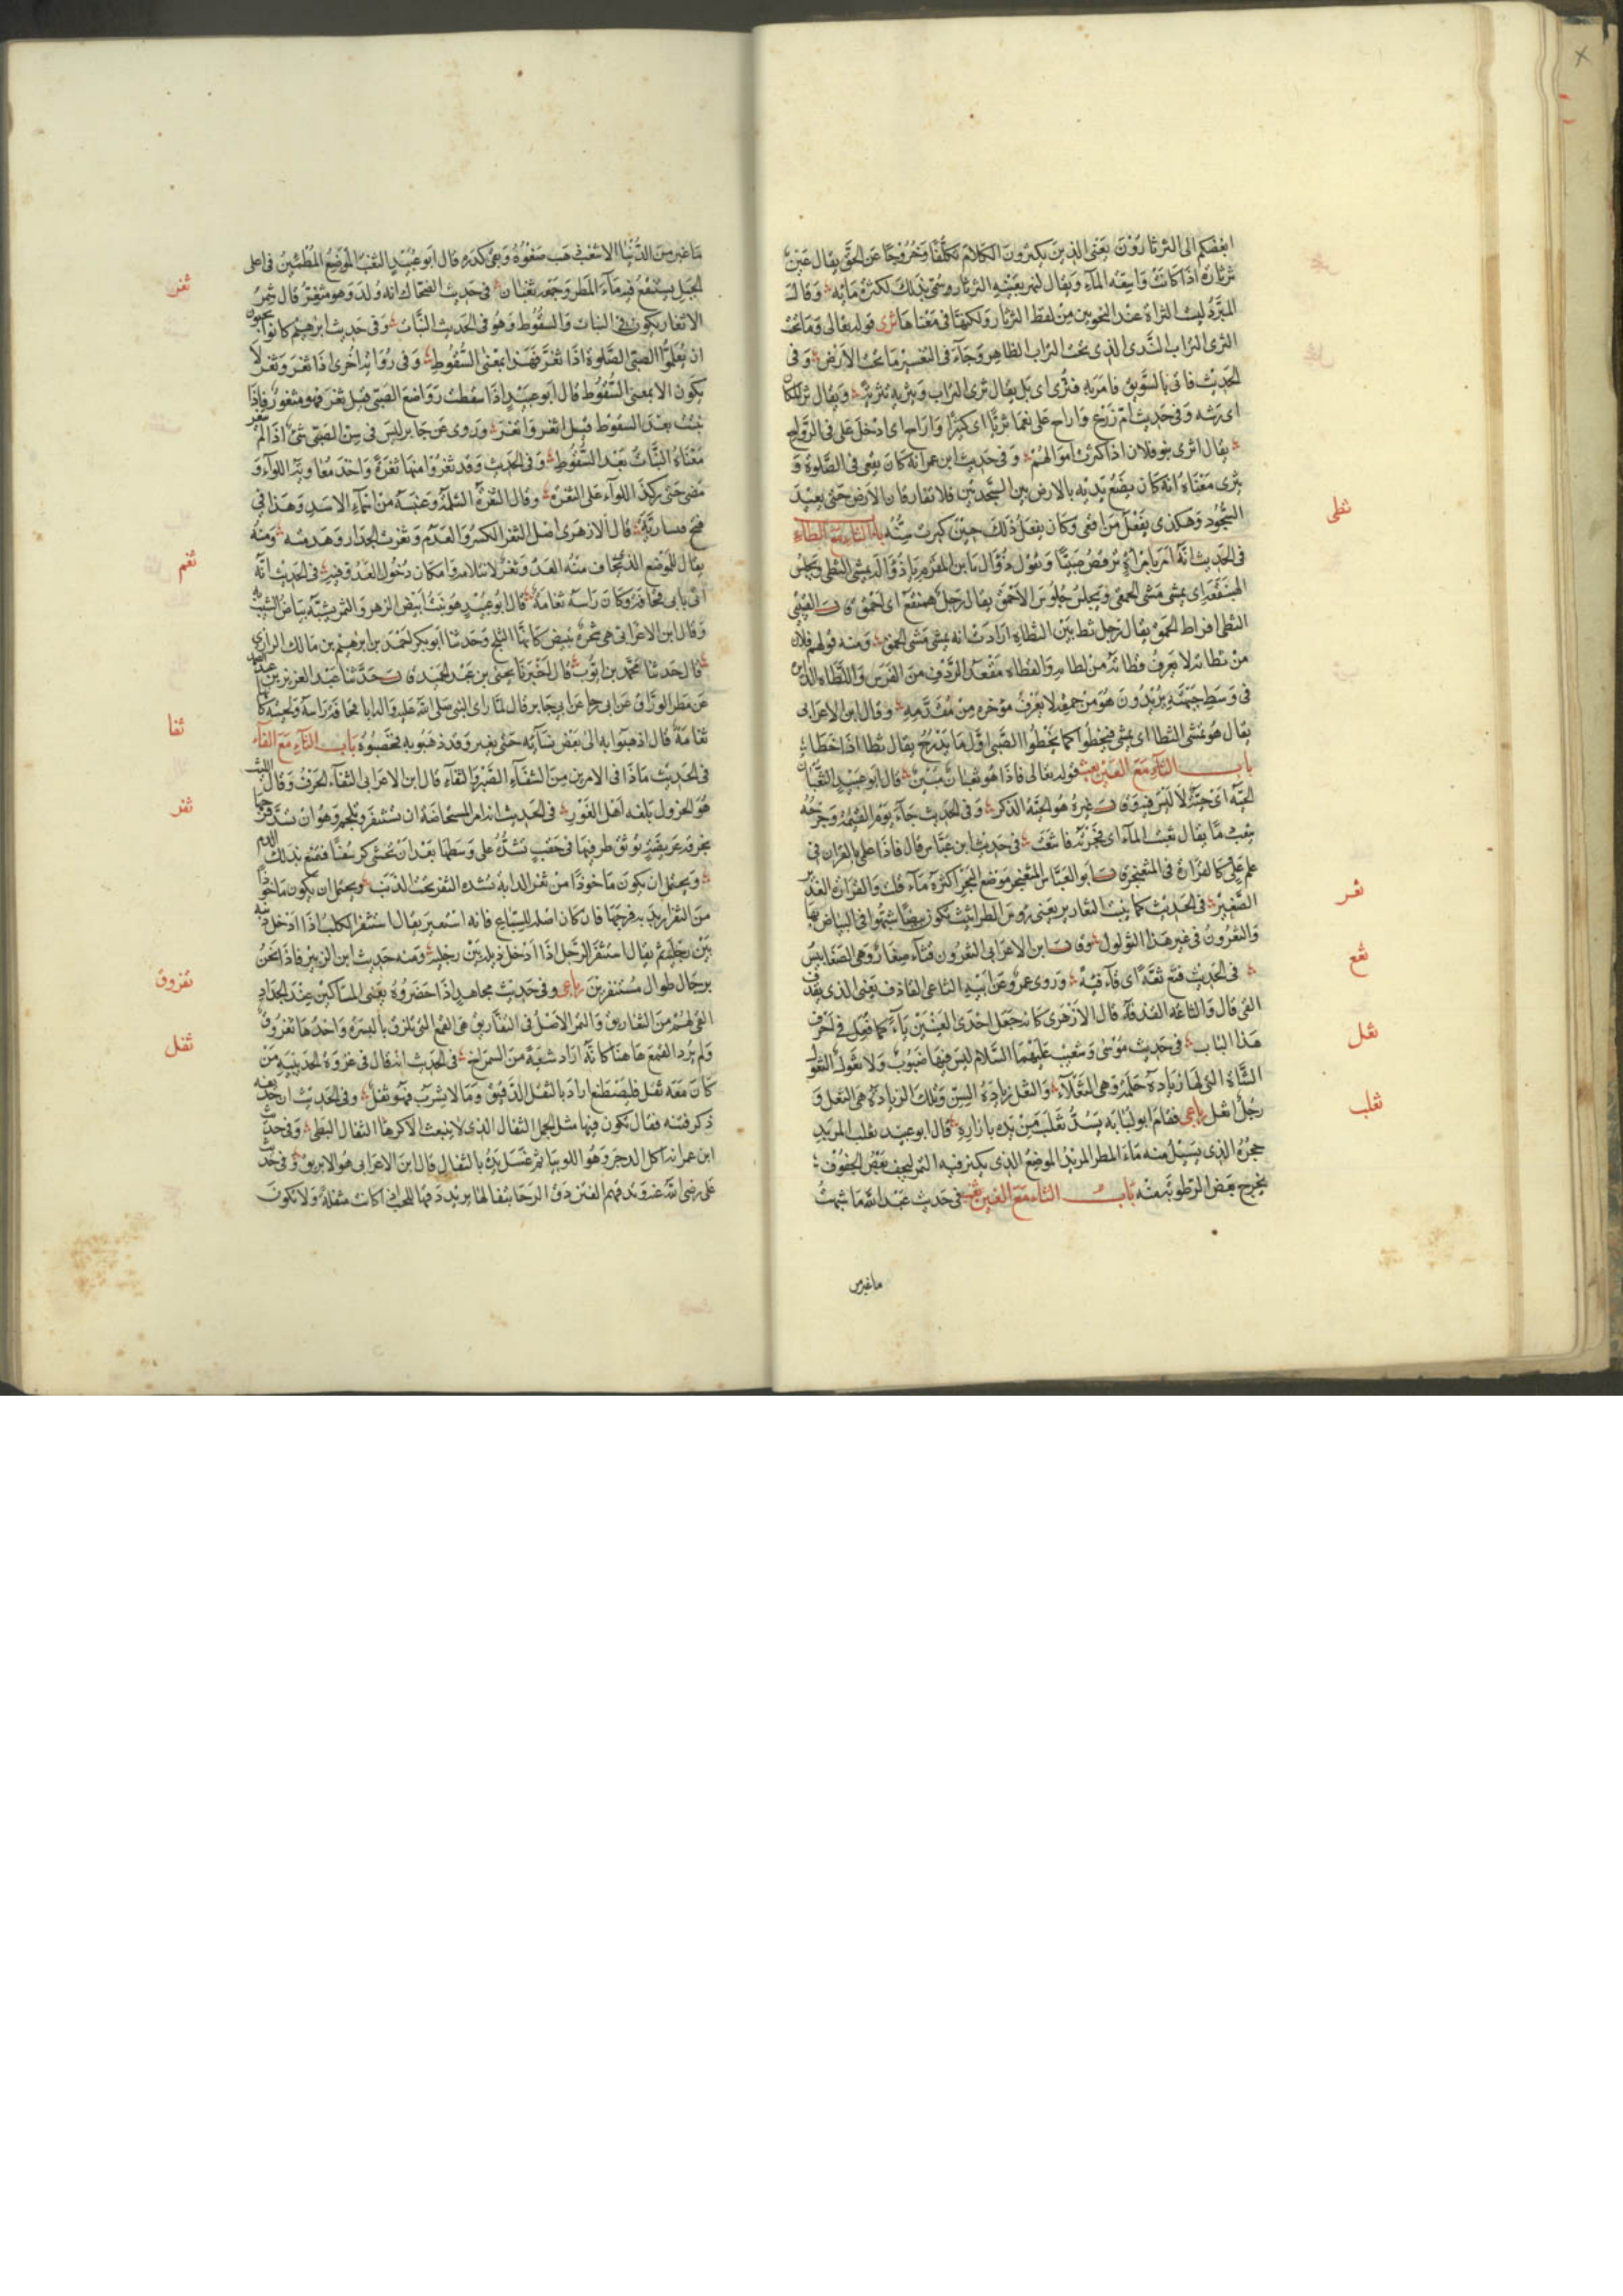 ابغضكم الى الثرثارون يعنى الذين يكثرون الكلام تكلفا وخروجا عن الحق يقال عين
ثرثارة اذا كانت واسعة المآء ويقال لنهر بعينه الثرثار وسمى بذلك لكثرة مائه وقال
المبرد ليست الثراة عند النحويين من لفظ الثرثار ولكنها فى معناها ثرى قوله تعالى وما تحت
الثرى التراب الندى الذى تحت التراب الظاهر وجآء فى التفسير ما تحت الارض وفى
الحديث فاتى بالسويق فامر به فثرى اى بل يقال ثرى التراب ويثريه تثرية ويقال ثر المكان
اى رشه وفى حديث ام زرع واراح على نعما ثريا اى كثيرا واراح اى ادخل على فى الرواح
يقال اثرى بنو فلان اذا كثرت اموالهم وفى حديث ابن عمر انه كان يقعى فى الصلوة و
يثرى معناه انه كان يضع يديه بالارض بين السجدتين فلا تفارقان الارض حتى يعيد
السجود وهكذى يفعل من اقعى وكان يفعل ذلك حين كبرت سنه باب الثاء مع الطاء
فى الحديث انه امر بامرأة ترقص صبيا وتقول ذؤال يا ابن القرم يا ذؤاله يمشى الثطى ويجلس
الهبنقعه اى يمشى مشى الحمقى ويجلس جلوس الاحمق يقال رجل هبنقع اى احمق قال القيبى
الثطى افراط الحمق يقال رجل ثط بين الثطاه ارادت انه يمشى مشى الحمق ومنه قولهم فلان
من ثطاته لا يعرف قطاته من لطاته والقطاه مقعد الردف من الفرس واللطاه الدائره
فى وسط جبهته يريدون هو من حمقه لا يعرف مؤخره من مقدمه وقال ابن الاعرابى
يقال هو يمشى الثطا اى يمشى فيخطوا كما يخطوا الصبى اول ما يدرج يقال ثطا اذا خطا
باب الثآء مع العين ثعب قوله تعالى فاذا هو ثعبان مبين قال ابو عبيد الثعبان
الحية اى حية لا لبس فيه وقال غيره هو الحية الذكر وفى الحديث جآء يوم القيمة وجرحه
يثعب دما يقال ثعبت المآء اى فجرته فانثعب فى حديث ابن عباس قال فاذا علمى بالقرآن فى
علم على كالقرارة فى المثعنجر قال ابو العباس المثعنجر موضع البحر اكثره مآء قلت والقرارة الغدير
الصغير فى الحديث كما ينبت الثعارير يعنى رؤس الطراثيث تكون بيضا شبهوا فى البياض بها
والثعرور فى غير هذا الثؤلول وقال ابن الاعرابى الثعرور قثآء صغار وهى الضغابيس
فى الحديث فثع ثعة اى قآء قيئة وروى عمرو عن ابيه الثاعى القاذف يعنى الذى يقذف
القى قال والثاعه القذفة قال الازهرى كانه جعل احدى العينين يآء كما فعل فى احرف
هذا الباب فى حديث موسى وشعيب عليهما السلام ليس فيها ضبوب ولا ثعول الثعول
الشاة التى لها زيادة حلمة وهى الثعلآء والثعل زيادة السن وتلك الزيادة هى الثعل و
رجل اثعل رباعى فقام ابو لبابه يسد ثعلب مربده بازاره قال ابو عبيد ثعلب المربد
جحره الذى يسيل منه ماء المطر المربد الموضع الذى يكنز فيه التمر ليجف بعض الجفوف
يخرج بعض الرطوبة منه باب الثاء مع الغين ثغب فى حديث عبد الله ما شبهت
ثطى
ثعر
ثعع
ثعل
ثعلب
ما غبر من
ما غبر من الدنيا الا بثغب ذهب صفوه وبقى كدره قال ابو عبيد الثغب الموضع المطمئن فى اعلى
الجبل يستنقع فيه مآء المطر وجمعه ثغبان فى حديث الضحاك انه ولد وهو مثغر قال شمر
الاثغار يكون فى النبات والسقوط وهو فى الحديث النبات وفى حديث ابرهيم كانوا يحبون
ان يعلموا الصبى الصلوة اذا اثغر فهذا بمعنى السقوط وفى رواية اخرى اذا ثغر وثغر لا
يكون الا بمعنى السقوط قال ابو عبيد اذا سقطت رواضع الصبى قيل ثغر فهو مثغور فاذا
نبتت بعد السقوط قيل اثغر واتغر وروى عن جابر ليس فى سن الصبى شئ اذا لم يثغر
معناه النبات بعد السقوط وفى الحديث وقد ثغروا منها ثغرة واحدة
مضى حتى ركز اللوآء على الثغرة وقال الثغرة الثلمة
فتح قيسارية قال الازهرى اصل الثغر الكسر والهدم وثغرت الجدار وهدمته ومنه
يقال للموضع الذى تخاف منه العدو ثغر لانثلامه وامكان دخول العدو فيه فى الحديث انه
اتى بابى قحافة وكان راسه ثغامة قال ابو عبيد هو نبت ابيض الزهر والثمر يشبه بياض الشيب به
وقال ابن الاعرابى هى شجرة تبيض كانها الثلج وحدثنا ابو بكر احمد بن ابرهيم بن مالك الرازى
قال حدثنا محمد بن ايوب قال اخبرنا يحيى بن عبد الحميد قال حدثنا عبد العزيز بن عبد الصمد
عن مطر الوراق عن ابى رجا عن ابى جابر قال لما راى النبى صلى الله عليه والد ابا قحافة راسه ولحيته كانها
ثغامة قال اذهبوا به الى بعض نسآئه حتى يغيره قد ذهبوا به فخضبوه باب الثآء مع الفآء
فى الحديث ماذا فى الامرين من الشفآء الصبر والثفاء قال ابن الاعرابى الثفآء الحرف وقال الليث
هو الخردل بلغة اهل الغور فى الحديث انه امر المستحاضة ان تستثفر وتلجم وهو ان تشد فرجها
بخرقة عريضة توثق طرفيها فى حقب تشده على وسطها بعد ان تحتشى كرسفا فتمنع بذلك الدم
ويحتمل ان يكون ماخوذا من ثفر الدابة تشده الثفر تحت الذنب ويحتمل ان يكون ماخوذا
من الثفر اريد به فرجها فان كان اصله للسباع فانه استعير يقال استثفر الكلب اذا ادخل ذنبه
بين رجليه ثم يقال استثفر الرجل اذا ادخل ذيله بين رجليه ومنه حديث ابن الزبير فاذا نحن
برجال طوال مستثفرين رباعى وفى حديث مجاهد اذا حضروه يعنى المساكين عند الجداد
القى لهم من الثفاريق والتمر الاصل فى الثفاريق هى القمع التى تلزق بالبسرة واحدها ثفروق
ولم يرد القمع ها هنا كانه اراد شعبة من الشمراخ فى الحديث انه قال فى غزوة الحديبية من
كان معه ثفل فليصطنع اراد بالثفل الدقيق وما لا يشرب فهو ثفل وفى الحديث ان حذيفة
ذكر فتنة فقال تكون فيها مثل الجمل الثفال الذى لا ينبعث الا كرها الثفال البطئ وفى حديث
ابن عمر انه اكل الدجر وهو اللوبيا ثم غسل يده بالثفال قال ابن الاعرابى هو الابريق وفى حديث
على رضى الله عنه وتدقهم الفتن دق الرحا بثفالها يريد دقها للحب اذا كانت مثفلة ولا تكون
ثغر
ثغم
ثفا
ثفر
ثفروق
ثفل